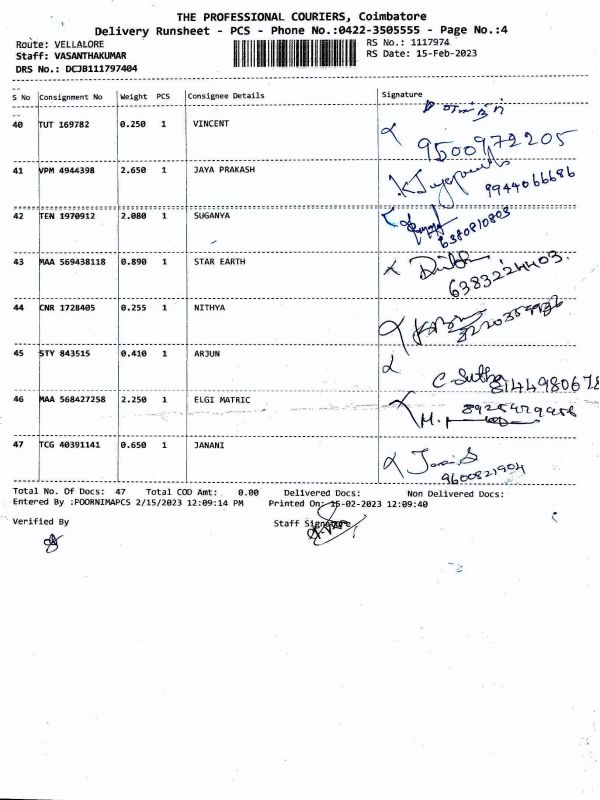 THE PROFESSIONAL COURIERS, Coimbatore
Delivery Runsheet - PCS - Phone No.:0422-3505555 - Page No.:4
Route: VELLALORE RS No.: 1117974
Staff: VASANTHAKUMAR RS Date: 15-Feb-2023
DRS No.: DCJB111797404
S No Consignment No Weight PCS Consignee Details Signature
40 TUT 169782 0.250 1 VINCENT
9500972205
41 VPM 4944398 2.650 1 JAYA PRAKASH
9944066686
42 TEN 1970912 2.080 1 SUGANYA
6380810803
43 MAA 569438118 0.890 1 STAR EARTH
6383224403.
44 CNR 1728405 0.255 1 NITHYA
45 STY 843515 0.410 1 ARJUN
8144980678
46 MAA 568427258 2.250 1 ELGI MATRIC
47 TCG 40391141 0.650 1 JANANI
9600821904
Total No. Of Docs: 47 Total COD Amt: 0.00 Delivered Docs: Non Delivered Docs:
Entered By :POORNIMAPCS 2/15/2023 12:09:14 PM Printed On: 15-02-2023 12:09:40
Verified By Staff Signature